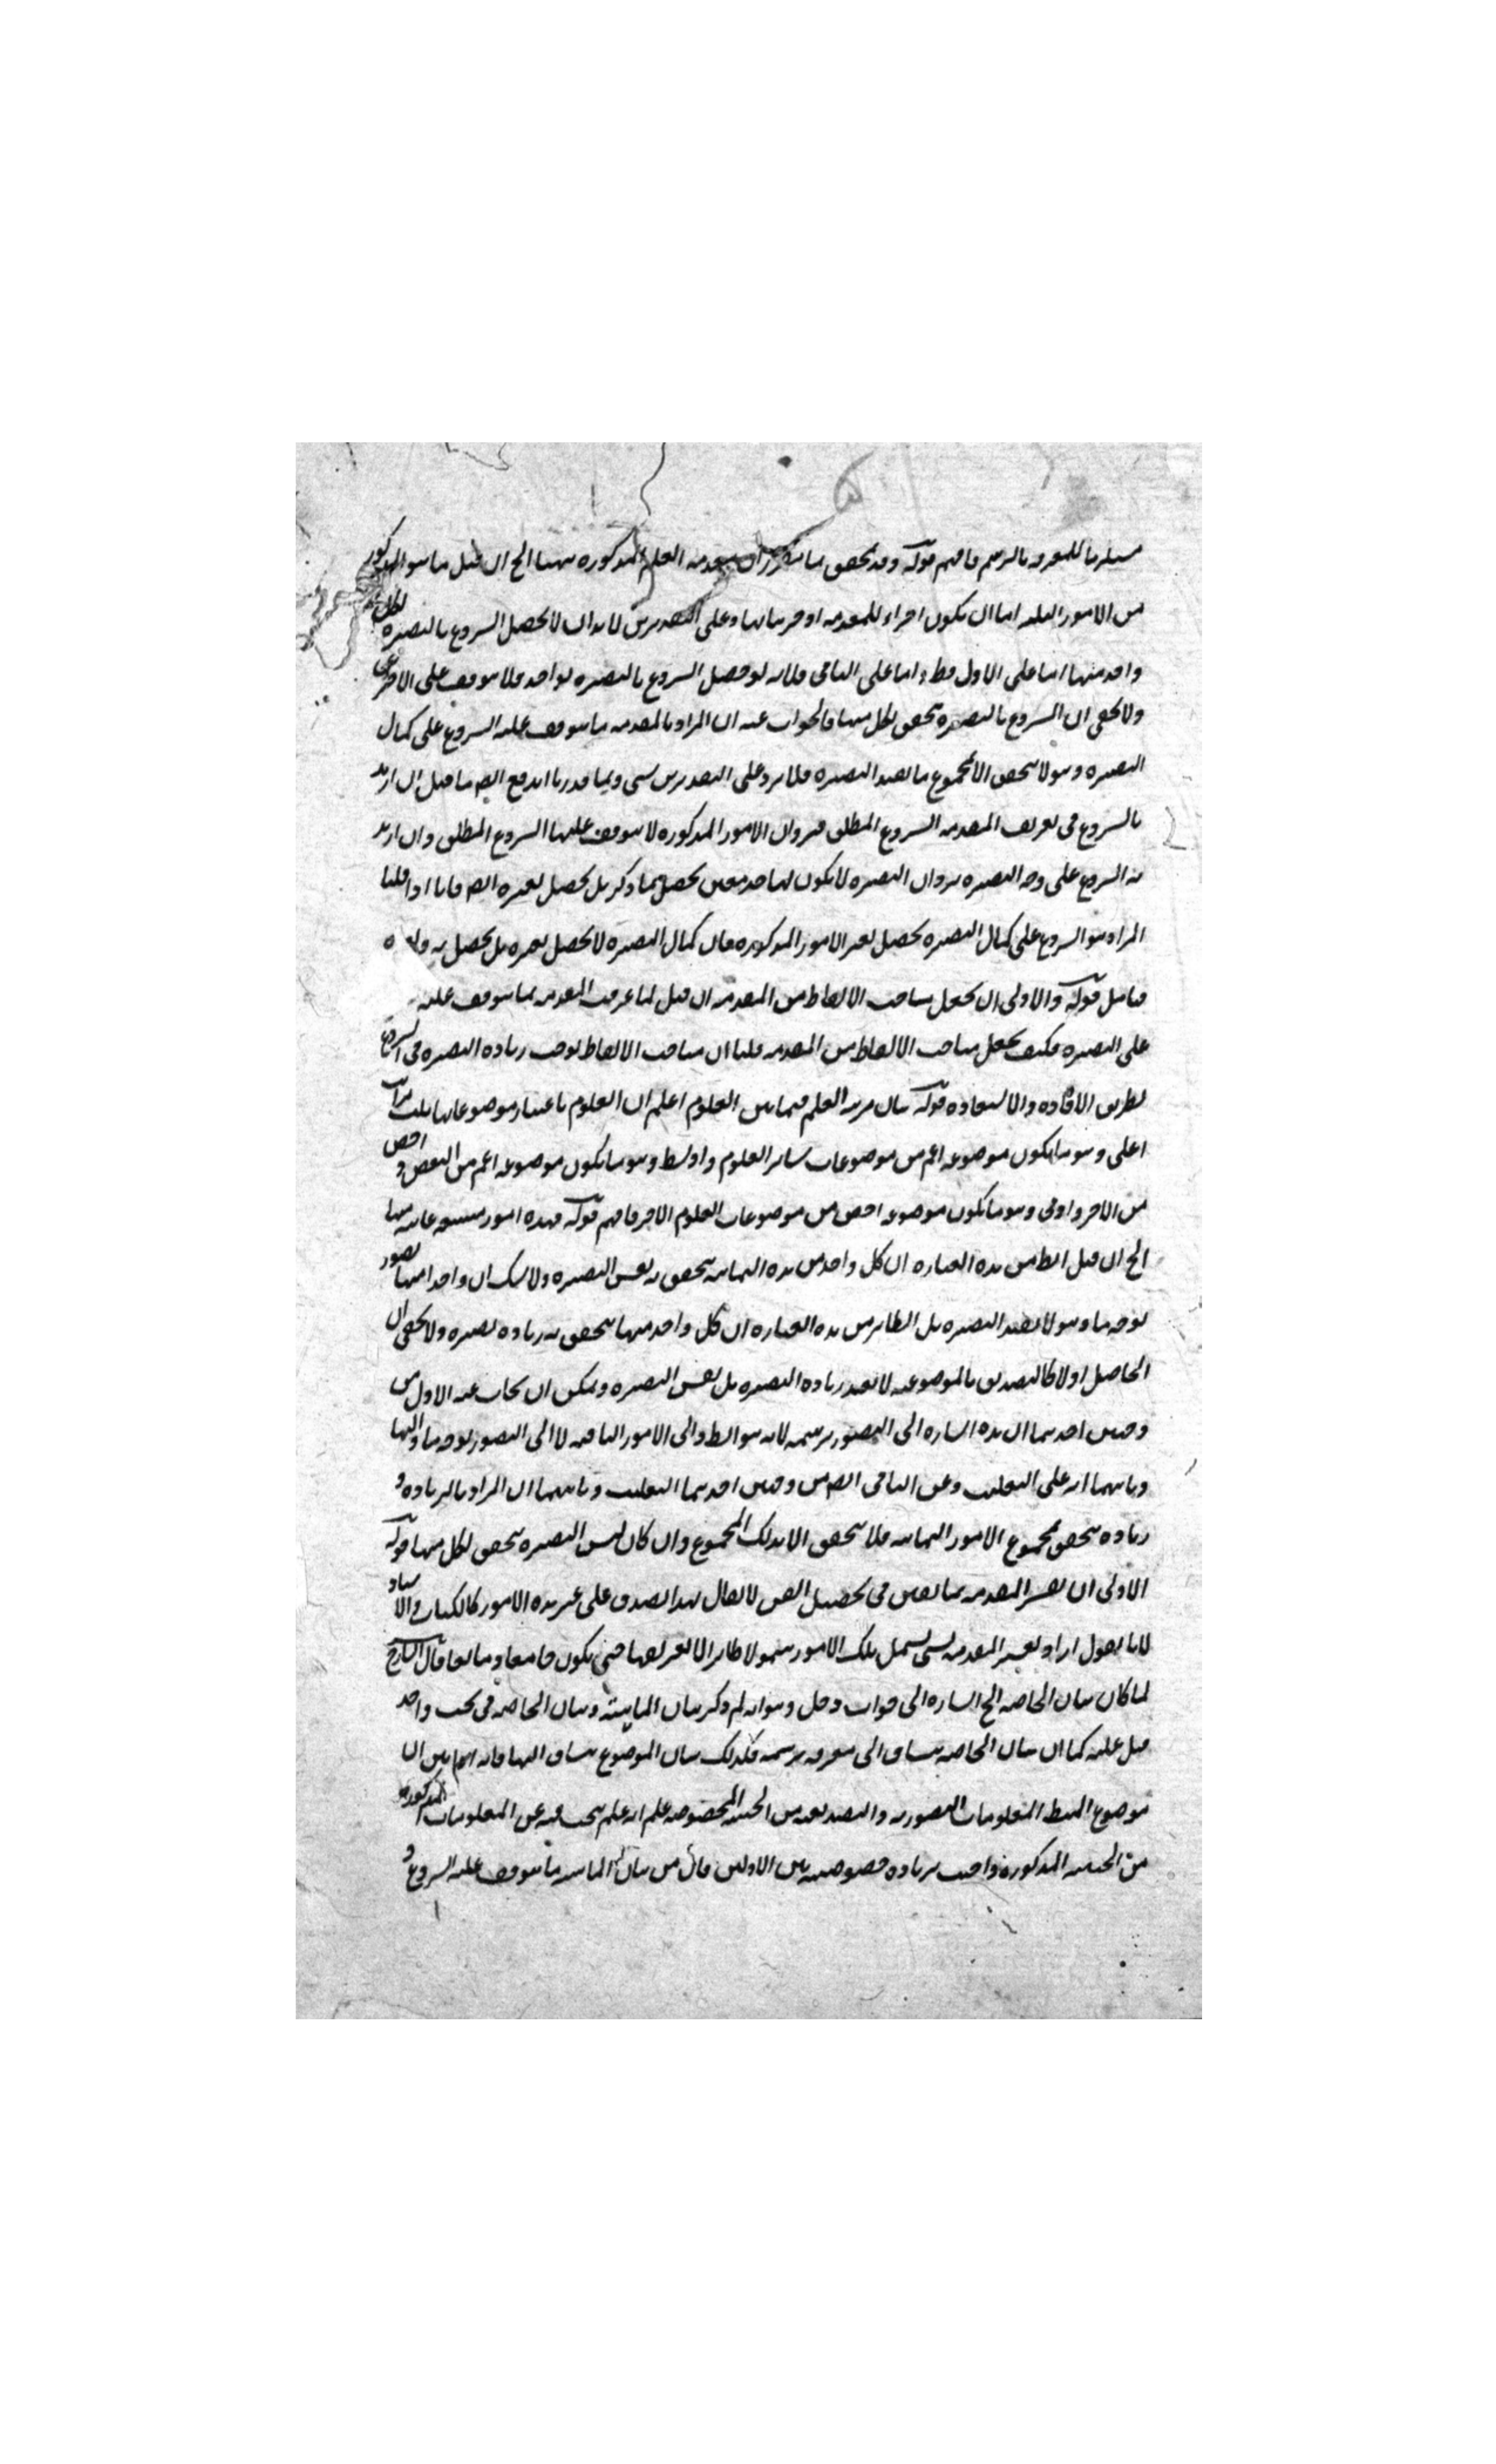 مستلزما للمعرفه بالرسم فافهم قوله وقد تحقق بما تقرر ان مقدمه العلم المذكوره ههنا الخ ان قيل ما هو المذكور
من الامور الثلثه اما ان يكون اجزاء للمقدمه او جزئياتها وعلى التقديرين لا بد ان لا يحصل الشروع بالبصيره لكل
واحد منها اما على الاول فظ واما على الثانى فلانه لو حصل الشروع بالبصيره لواحد فلا يتوقف على الاخر
ولا يخفى ان الشروع بالبصيره يتحقق لكل منها فالجواب عنه ان المراد بالمقدمه ما يتوقف عليه الشروع على كمال
البصيره وهو لا يتحقق الا بمجموع ما يفيد البصيره فلا يرد على التقديرين شى وبما قدرنا اندفع ايض ما قيل ان اريد
بالشروع فى تعريف المقدمه الشروع المطلق فيرد ان الامور المذكوره لا يتوقف عليها الشروع المطلق وان اريد
به الشروع على وجه البصيره يرد ان البصيره لا يكون لها حد معين يحصل بما ذكر بل يحصل بغيره ايض فانا اذا قلنا
المراد هو الشروع على كمال البصيره يحصل بغير الامور المذكوره فان كمال البصيره لا يحصل بغيره بل يحصل به
فتامل قوله والاولى ان يجعل مباحث الالفاظ من المقدمه ان قيل لما عرفت المقدمه بما يتوقف عليه
على البصيره فكيف يجعل مباحث الالفاظ من المقدمه قلنا ان مباحث الالفاظ توجب زياده البصيره فى الشروع
بطريق الافاده والاستفاده قوله بيان مرتبه العلم فيما بين العلوم اعلم ان العلوم باعتبار موضوعاتها ثلث مراتب
اعلى وهو ما يكون موضوعه اعم من موضوعات سائر العلوم واوسط وهو ما يكون موضوعه اعم من البعض و اخص
من الاخر وادنى وهو ما يكون موضوعه اخص من موضوعات العلوم الاخر فافهم قوله فهذه امور تسعه ثمانيه منها
الخ ان قيل الظ من هذه العباره ان كل واحد من هذه الثمانيه يتحقق به نفس البصيره ولا شك ان واحدا منها تصور
بوجه ما وهو لا يفيد البصيره بل الظاهر من هذه العباره ان كل واحد منها يتحقق به زياده بصيره ولا يخفى ان
الحاصل اولا كالتصديق بالموضوعيه لا يفيد زياده البصيره بل نفس البصيره ويمكن ان يجاب عن الاول من
وجهين احدهما ان هذه اشاره الى التصور برسمه لانه هو الظ والى الامور الباقيه لا الى التصور بوجه ما واليها
وثانيهما انه على التغليب وعن الثانى ايض من وجهين احدهما التغليب وثانيهما ان المراد بالزياده
زياده يتحقق بمجموع الامور الثمانيه فلا يتحقق الا بذلك المجموع وان كان نفس البصيره يتحقق لكل منها قوله
الاولى ان يفسر المقدمه بما يعين فى تحصيل الفن لا يقال هذا يصدق على غير هذه الامور كالكتاب والاستاد
لانا نقول اراد تفسير المقدمه بشى يشمل تلك الامور شمولا ظاهرا لا تعريفها حتى يكون جامعا ومانعا قال الشارح
لما كان بيان الحاجه الخ اشاره الى جواب دخل وهو انه لم ذكر بيان الماهيته وبيان الحاجه فى بحث واحد
قيل عليه كما ان بيان الحاجه ينساق الى معرفه برسمه فكذلك بيان الموضوع ينساق اليها فانه اذا بين ان
موضوع المنطق المعلومات التصوريه والتصديقيه من الحيثيه المخصوصه علم انه علم يبحث فيه عن المعلومات المذكوره
من الحيثيه المذكوره واجيب بزياده خصوصيه بين الاولين فان من بيان الماهيه ما يتوقف عليه الشروع و